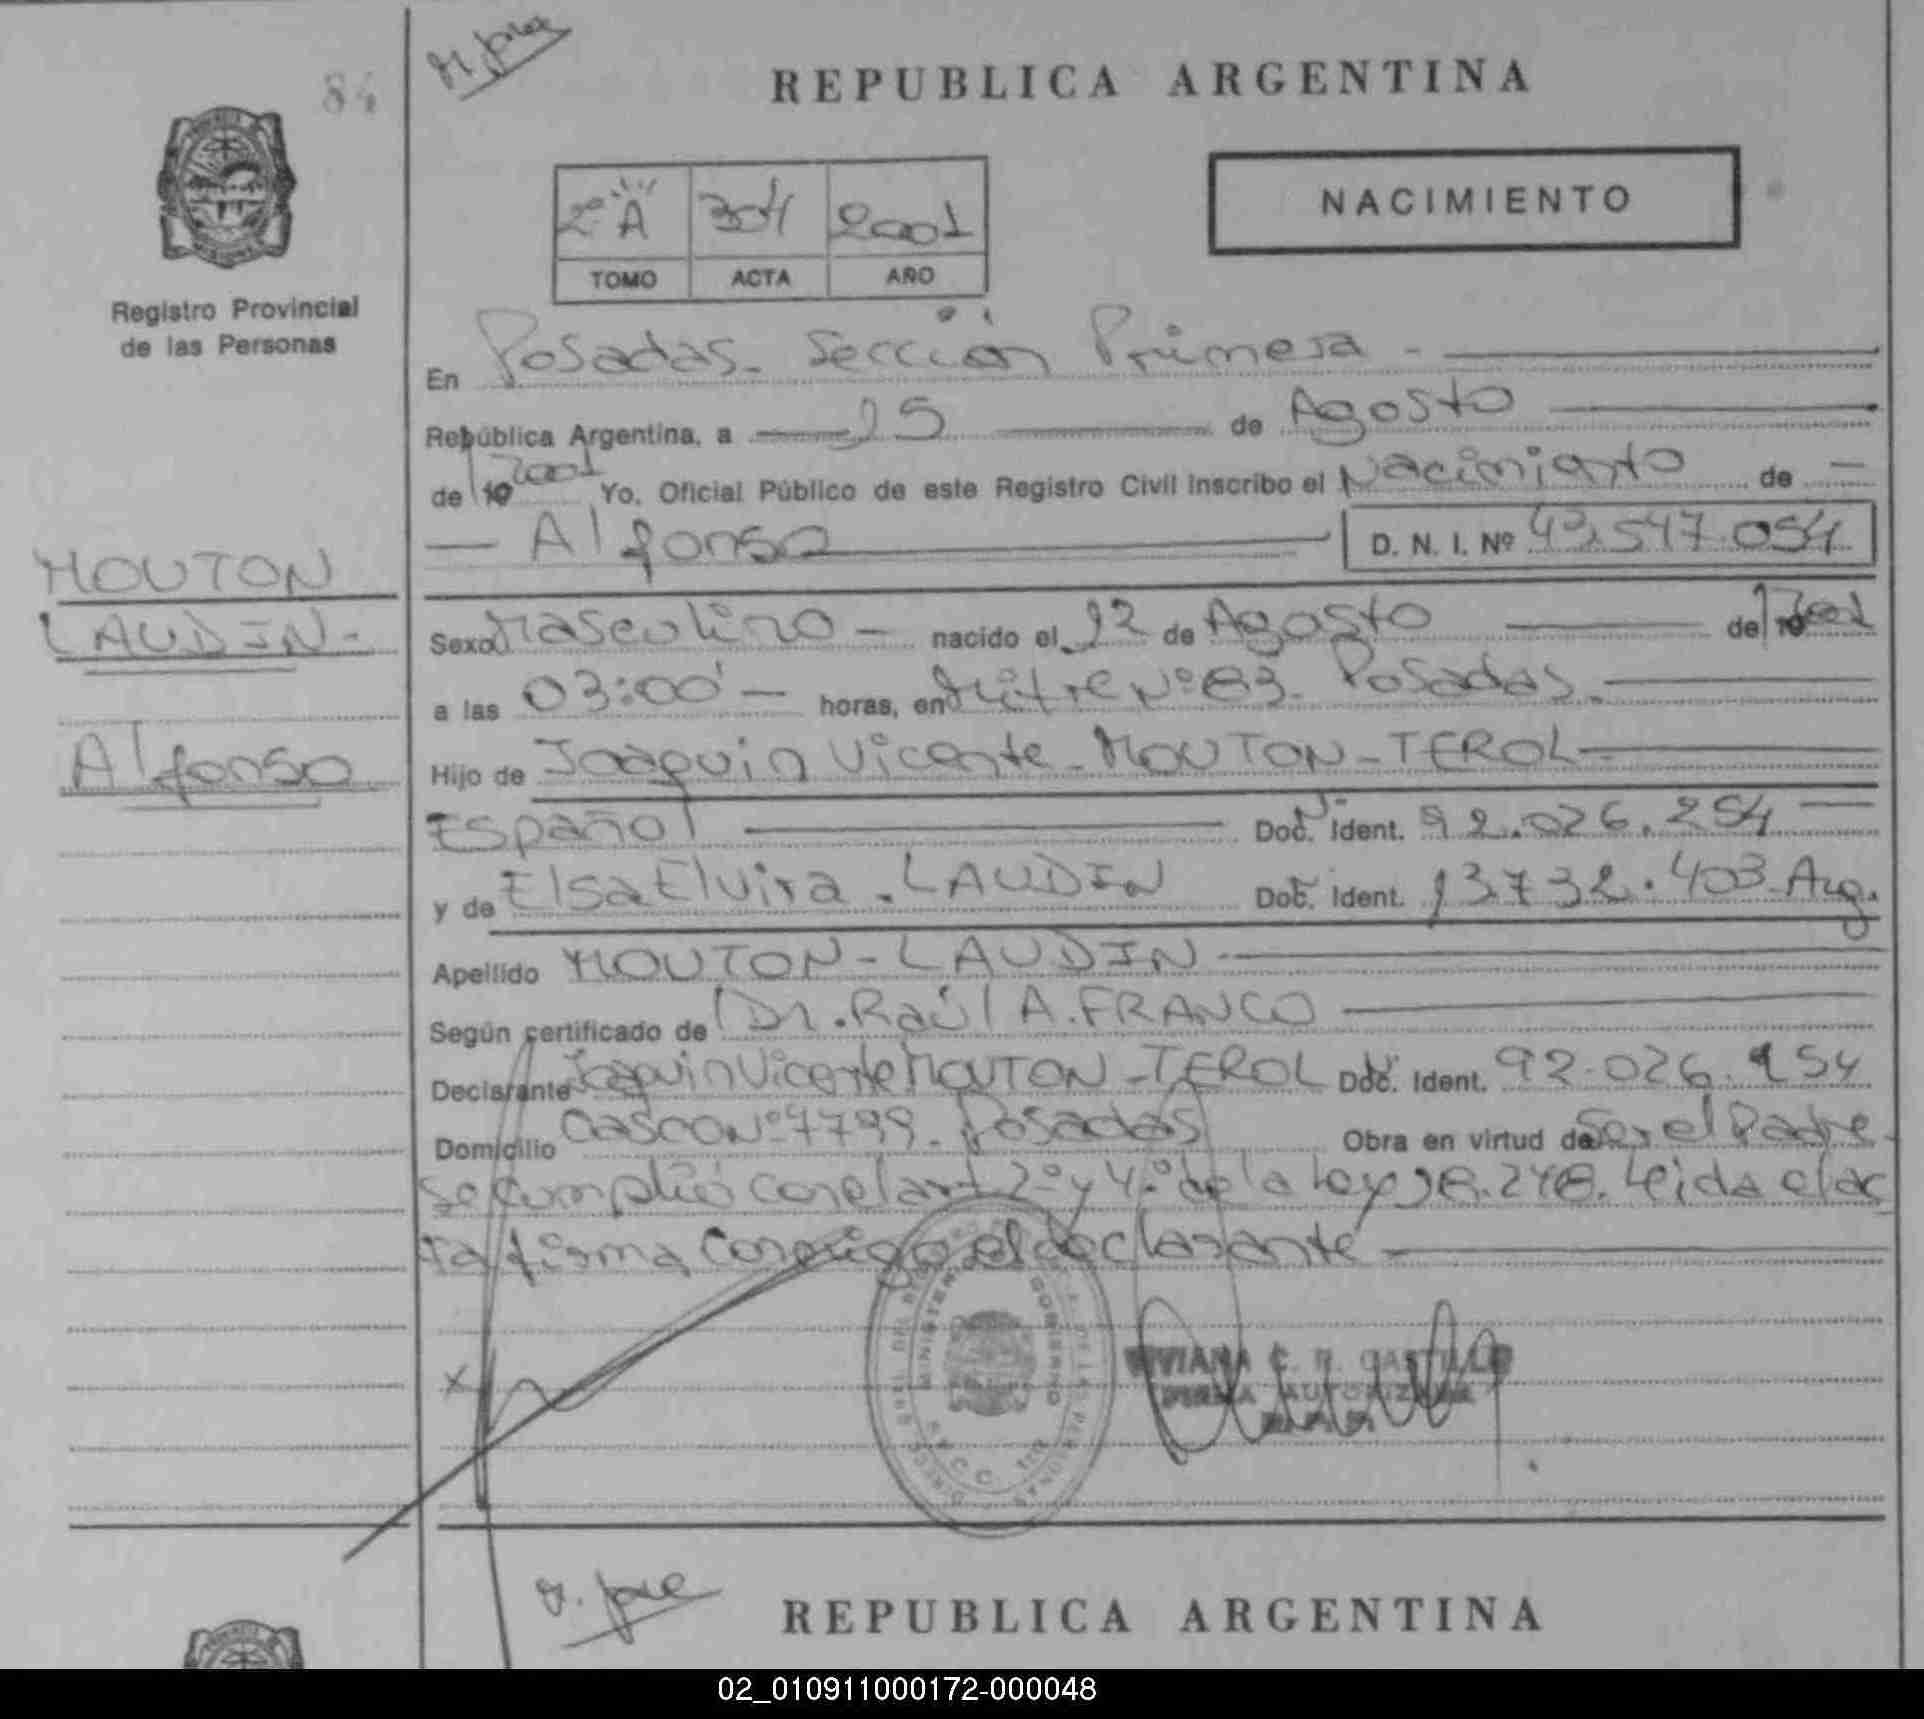 84
REPUBLICA ARGENTINA
2º A 304 2001
TOMO ACTA AÑO
NACIMIENTO
Registro Provincial
de las Personas
En Posadas. Sección Primera -
República Argentina, a 15 de Agosto
de 19 2001 Yo, Oficial Público de este Registro Civil inscribo el Nacimiento de
Alfonso D. N. I. Nº 43.547.054
MOUTON
LAUDIN-
Alfonso
Sexo Masculino - nacido el 12 de Agosto de 19 2001
a las 03:00' - horas, en Mitre Nº 83. Posadas.
Hijo de Joaquin Vicente - MOUTON - TEROL
Español Doc. Ident. 92.026.254
y de Elsa Elvira . LAUDIN Doc. Ident. 13.732.403 Arg.
Apellido MOUTON - LAUDIN
Según certificado de Dr. Raúl A. FRANCO
Declarante Joaquin Vicente MOUTON - TEROL Doc. Ident. 92.026.254
Domicilio Nº 7799. Posadas Obra en virtud de Ser el Padre
Se cumplió con el art 2º y 4º de la Ley 18.248. Leida el ac
ta firma conmigo el declarante
MINISTERIO GOBIERNO
VIVIANA C. R. CASTILLO
FIRMA AUTORIZADA
REPUBLICA ARGENTINA
02_010911000172-000048